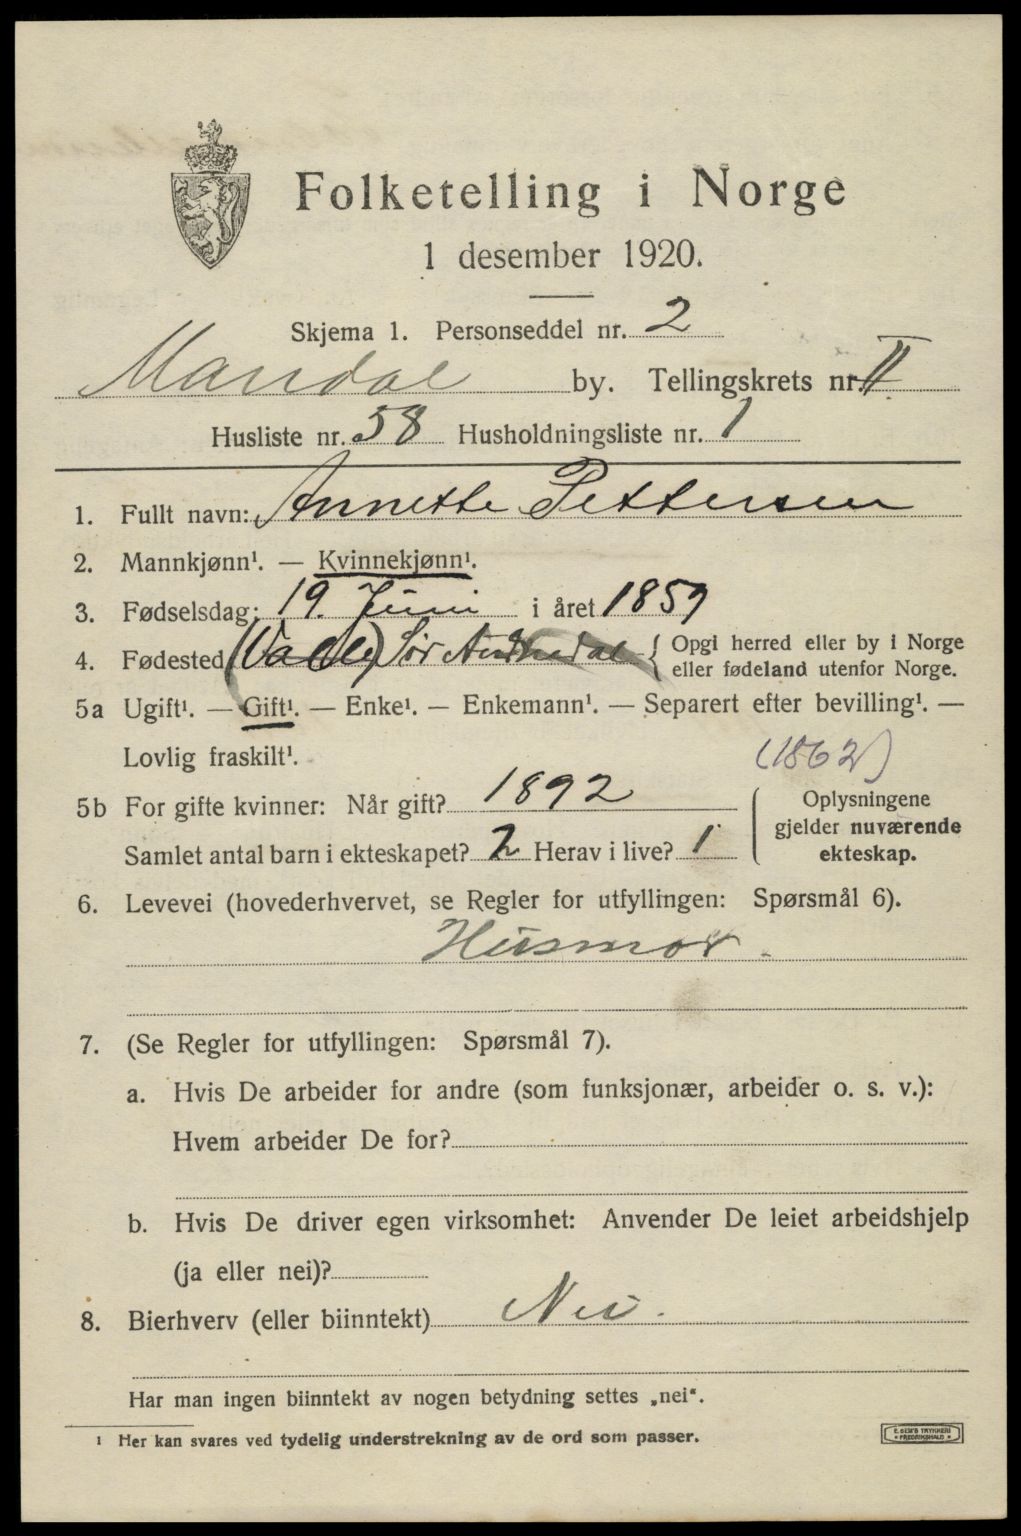 Folketelling i Norge
1 desember 1920.
Skjema 1. Personseddel nr. 2
Mandal by. Tellingskrets nr. II
Husliste nr. 58 Husholdningsliste nr. 1
1. Fullt navn: Annette Pettersen
2. Mannkjønn¹. — Kvinnekjønn¹.
3. Fødselsdag: 19. Juni i året 1859
4. Fødested (Valle) Sør Audnedal { Opgi herred eller by i Norge
eller fødeland utenfor Norge.
5a Ugift¹. — Gift¹. — Enke¹. — Enkemann¹. — Separert efter bevilling¹. —
Lovlig fraskilt¹.
(1862)
5b For gifte kvinner: Når gift? 1892
Samlet antal barn i ekteskapet? 2 Herav i live? 1
Oplysningene
gjelder nuværende
ekteskap.
6. Levevei (hovederhvervet, se Regler for utfyllingen: Spørsmål 6).
Husmor.
7. (Se Regler for utfyllingen: Spørsmål 7).
a. Hvis De arbeider for andre (som funksjonær, arbeider o. s. v.):
Hvem arbeider De for?
b. Hvis De driver egen virksomhet: Anvender De leiet arbeidshjelp
(ja eller nei)?
8. Bierhverv (eller biinntekt) Nei.
Har man ingen biinntekt av nogen betydning settes „nei".
¹ Her kan svares ved tydelig understrekning av de ord som passer.